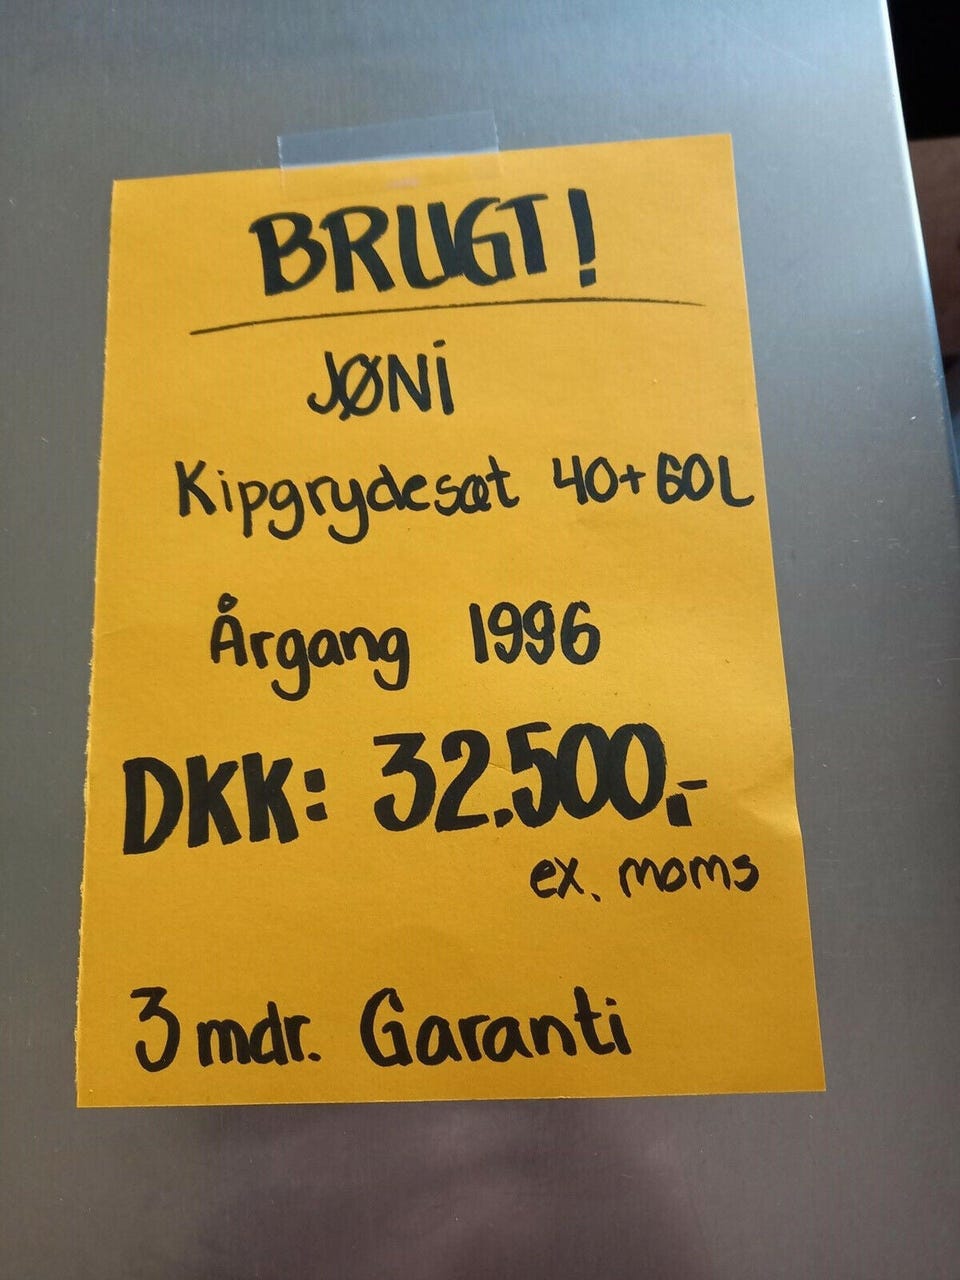 BRUGT!
JØNi
Kipgrydesæt 40+60L
Årgang 1996
DKK: 32.500,-
ex. moms
3 mdr. Garanti